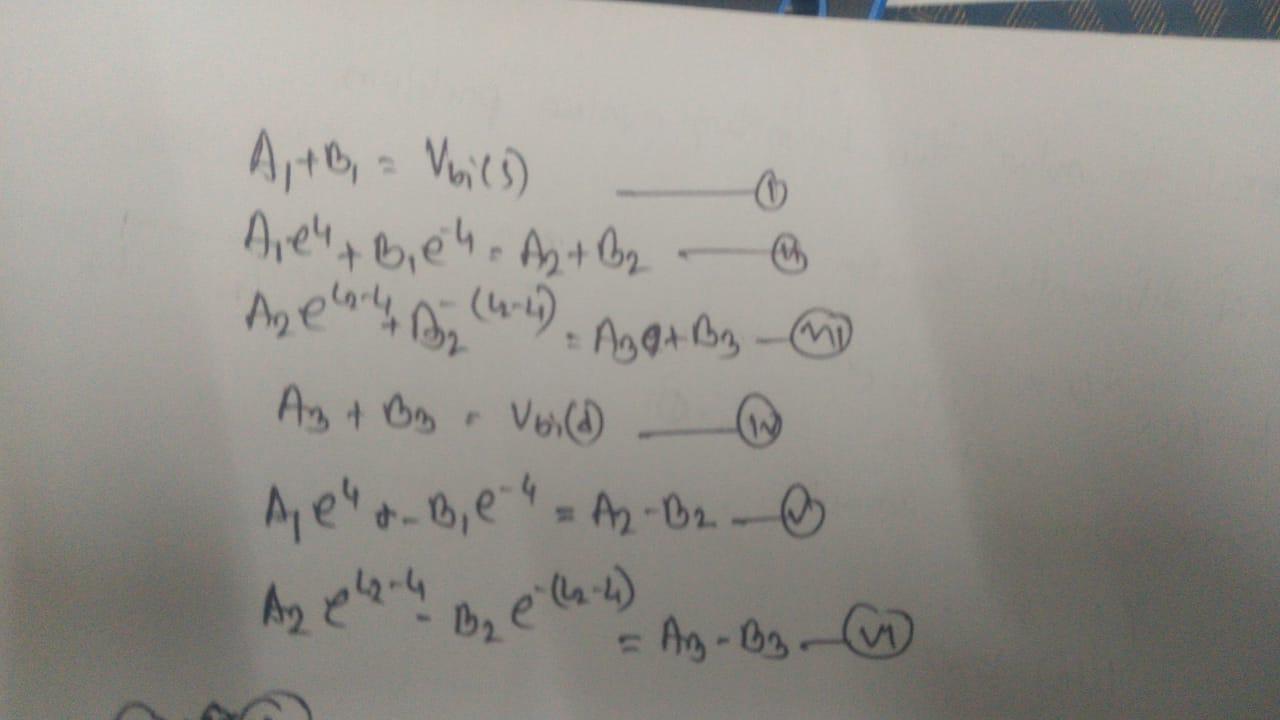 A₁+B₁ = Vbi(s) —— (I)
A₁e^L₁ + B₁e^-L₁ = A₂+B₂ —— (II)
A₂e^L₂-L₁ + B₂^-(L₂-L₁) = A₃+B₃ — (III)
A₃ + B₃ = Vbi(d) —— (IV)
A₁e^L₁ - B₁e^-L₁ = A₂-B₂ — (V)
A₂e^L₂-L₁ - B₂e^-(L₂-L₁)
= A₃-B₃ — (VI)